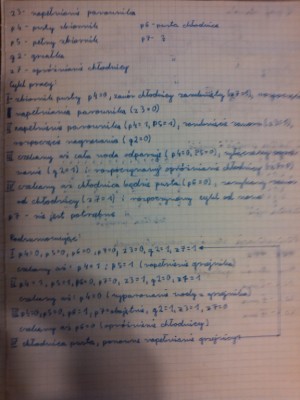 z3 - napełnianie parownika
p4 - pusty zbiornik p6 - pusta chłodnica
p5 - pełny zbiornik p7 - 3
g2 - grzałka
z7 - opróżnianie chłodnicy
Cykl pracy:
I zbiornik pusty p4=0, zawór chłodnicy zamknięty (z7=1), rozpoczęcie
napełniania parownika (z3=0)
II napełnienie parownika (p4=1, p5=1), zamknięcie zaworu (z3=1),
rozpoczęcie nagrzewania (g2=0)
III czekamy aż cała woda odparuje (p4=0, p5=0), wyłączamy
(g2=1) i rozpoczynamy opróżnianie chłodnicy
IV czekamy aż chłodnica będzie pusta (p6=0), zamykamy zawór
od chłodnicy (z7=1) i rozpoczynamy cykl od nowa
p7 - nie jest potrzebne
Podsumowując:
I p4=0, p5=0, p6=0, p7=0, z3=0, g2=1, z7=1
czekamy aż: p4=1 i p5=1 (napełnienie grzejnika)
II p4=1, p5=1, p6=0, p7=0, z3=1, g2=0, z7=1
czekamy aż: p4=0 (wyparowanie wody z grzejnika)
III p4=0, p5=0, p6=1, p7=obojętnie, g2=1, z3=1, z7=0
czekamy aż p6=0 (opróżnienie chłodnicy)
IV chłodnica pusta, ponowne napełnianie grzejnika